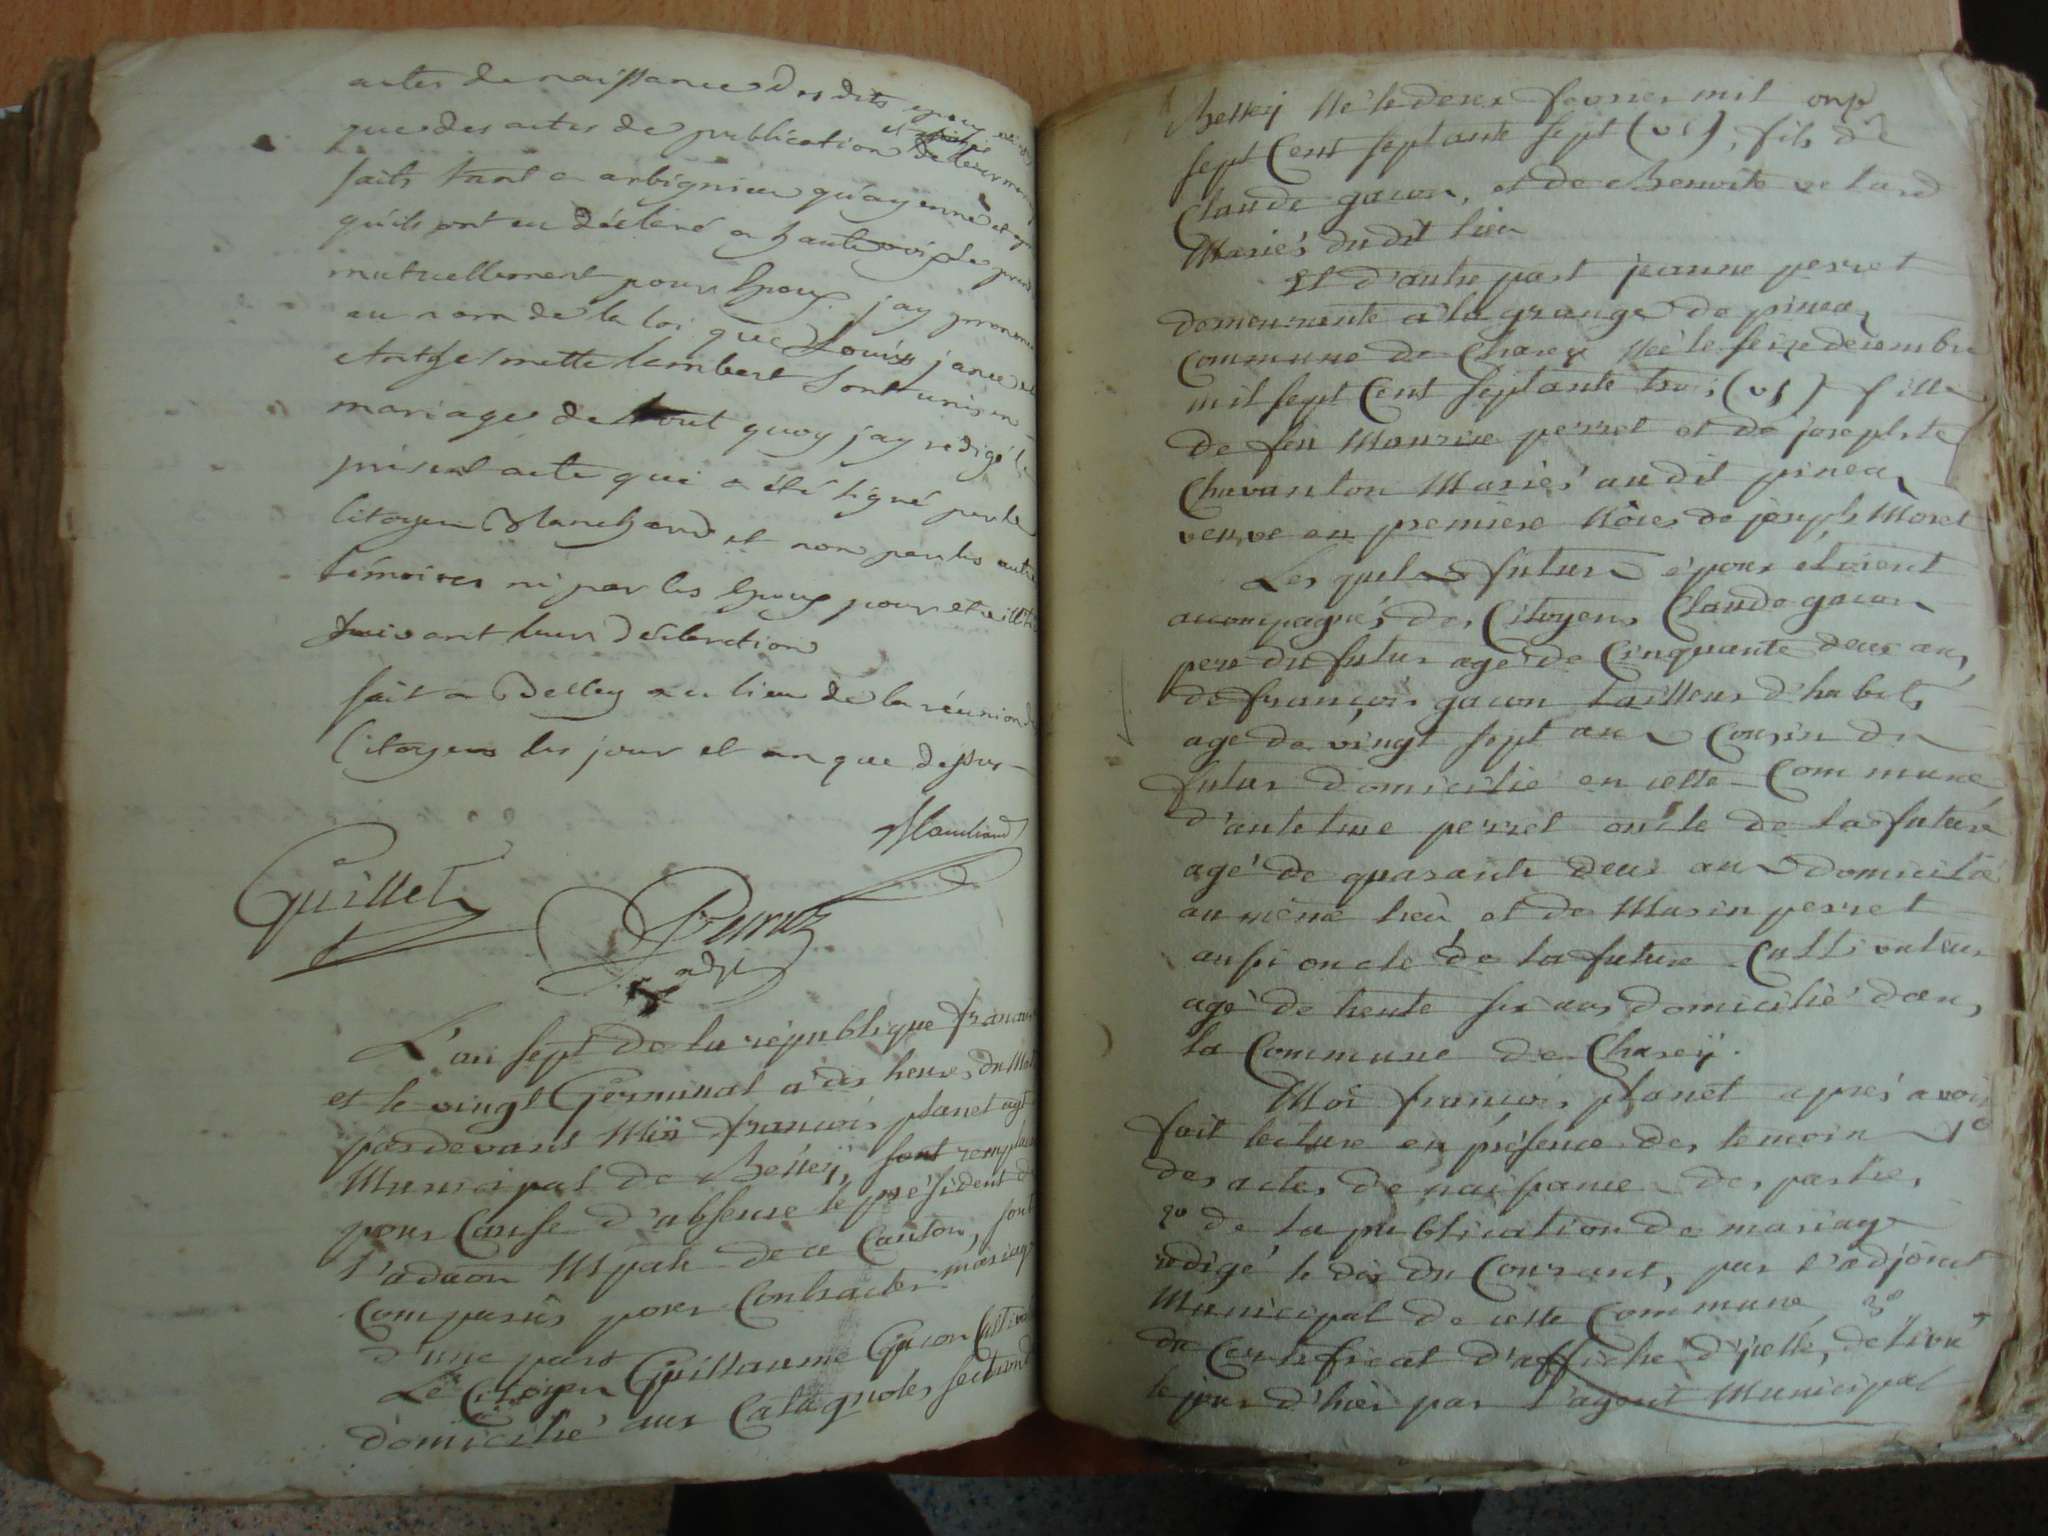 actes de naissance des dits epoux
que des actes de publication de leur
faits tant a arbignieu qu'ayenne et
qu'ils ont eu déclaré a haute voix se
mutuellement pour Epoux jay prononcé
au nom de la loi que Louis
lambert sont unis en
mariage de tout quoy jay redigé le
présent acte qui a été signé par le
Citoyen Marchand et non par les autre
témoins ni par les Epoux pour etre
suivant leur déclaration
fait a Belley au lieu de la réunion de
Citoyens les jour et an que dessus
Marchand
Guillet
adjt
L'an sept de la république
et le vingt Germinal a dix heures du
pardevant Moi françois planet agt
Municipal de Belley,
pour Cause d'absence le président de
l'adaõn Mpale de ce Canton, sont
Comparus pour Contracter mariage
d'une part
Le Citoyen Guillaume Gacon
domicilié aux Catagnoles section de
Belley Né le deux fevrier mil
sept Cent septante sept (vs), fils de
Claude gacon, et de Benoite velard
Mariés du dit lieu
Et d'autre part jeanne perret
demeurante a la grange de pinea,
Commune de Chasey Née le seize décembre
mil sept Cent septante trois (vs) fille
de feu Maurice perret et de josephte
Chavanton Mariés audit pinea,
veuve en premiere Nôces de joseph Moret
Les quels futurs époux etoient
accompagnés des Citoyens Claude gacon
pere du futur agé de Cinquante deux ans,
de françois gacon tailleur d'habits
agé de vingt sept ans Cousin du
futur domicilié en cette Commune
d'antelme perret oncle de la future
agé de quarante deux ans domicilié
au même lieu et de Marin perret
aussi oncle de la future Cultivateur
agé de trente six ans domicilié dans
la Commune de Chasey.
Moi françois planet aprés avoir
fait lecture en présence des temoins 1º
des actes de naissance des parties,
2º de la publication de mariage
rédigé le dix du Courant, par l'adjoint
Municipal de cette Commune, 3º
du Certificat d'affiche d'icelle, délivré
le jour d'hier par l'agent Municipal